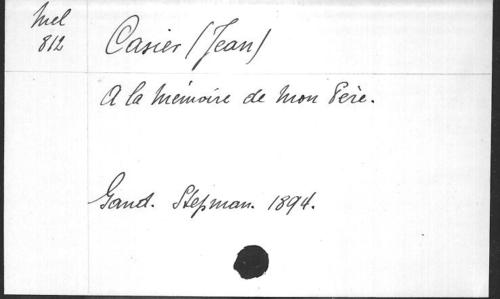 Mel
812
Casier (Jean)
A la Mémoire de Mon Père.
Gand. Stepman. 1894.